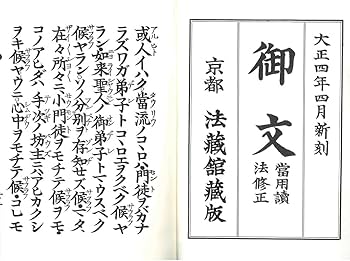 大正四年四月新刻
御文
當用讀
法修正
京都 法藏館藏版
或人イハク當流ノコヽロハ門徒ヲバカナ
ラズワガ弟子トコヽロエヲクベク候ヤ
ラン如來聖人ノ御弟子トマウスベク
候ヤランソノ分別ヲ存知セズ候マタ
在々所々ニ小門徒ヲモチテ候ヲモ
コノアヒダハ手次ノ坊主ニハアヒカクシ
ヲキ候ヤウニ心中ヲモチテ候コレモ